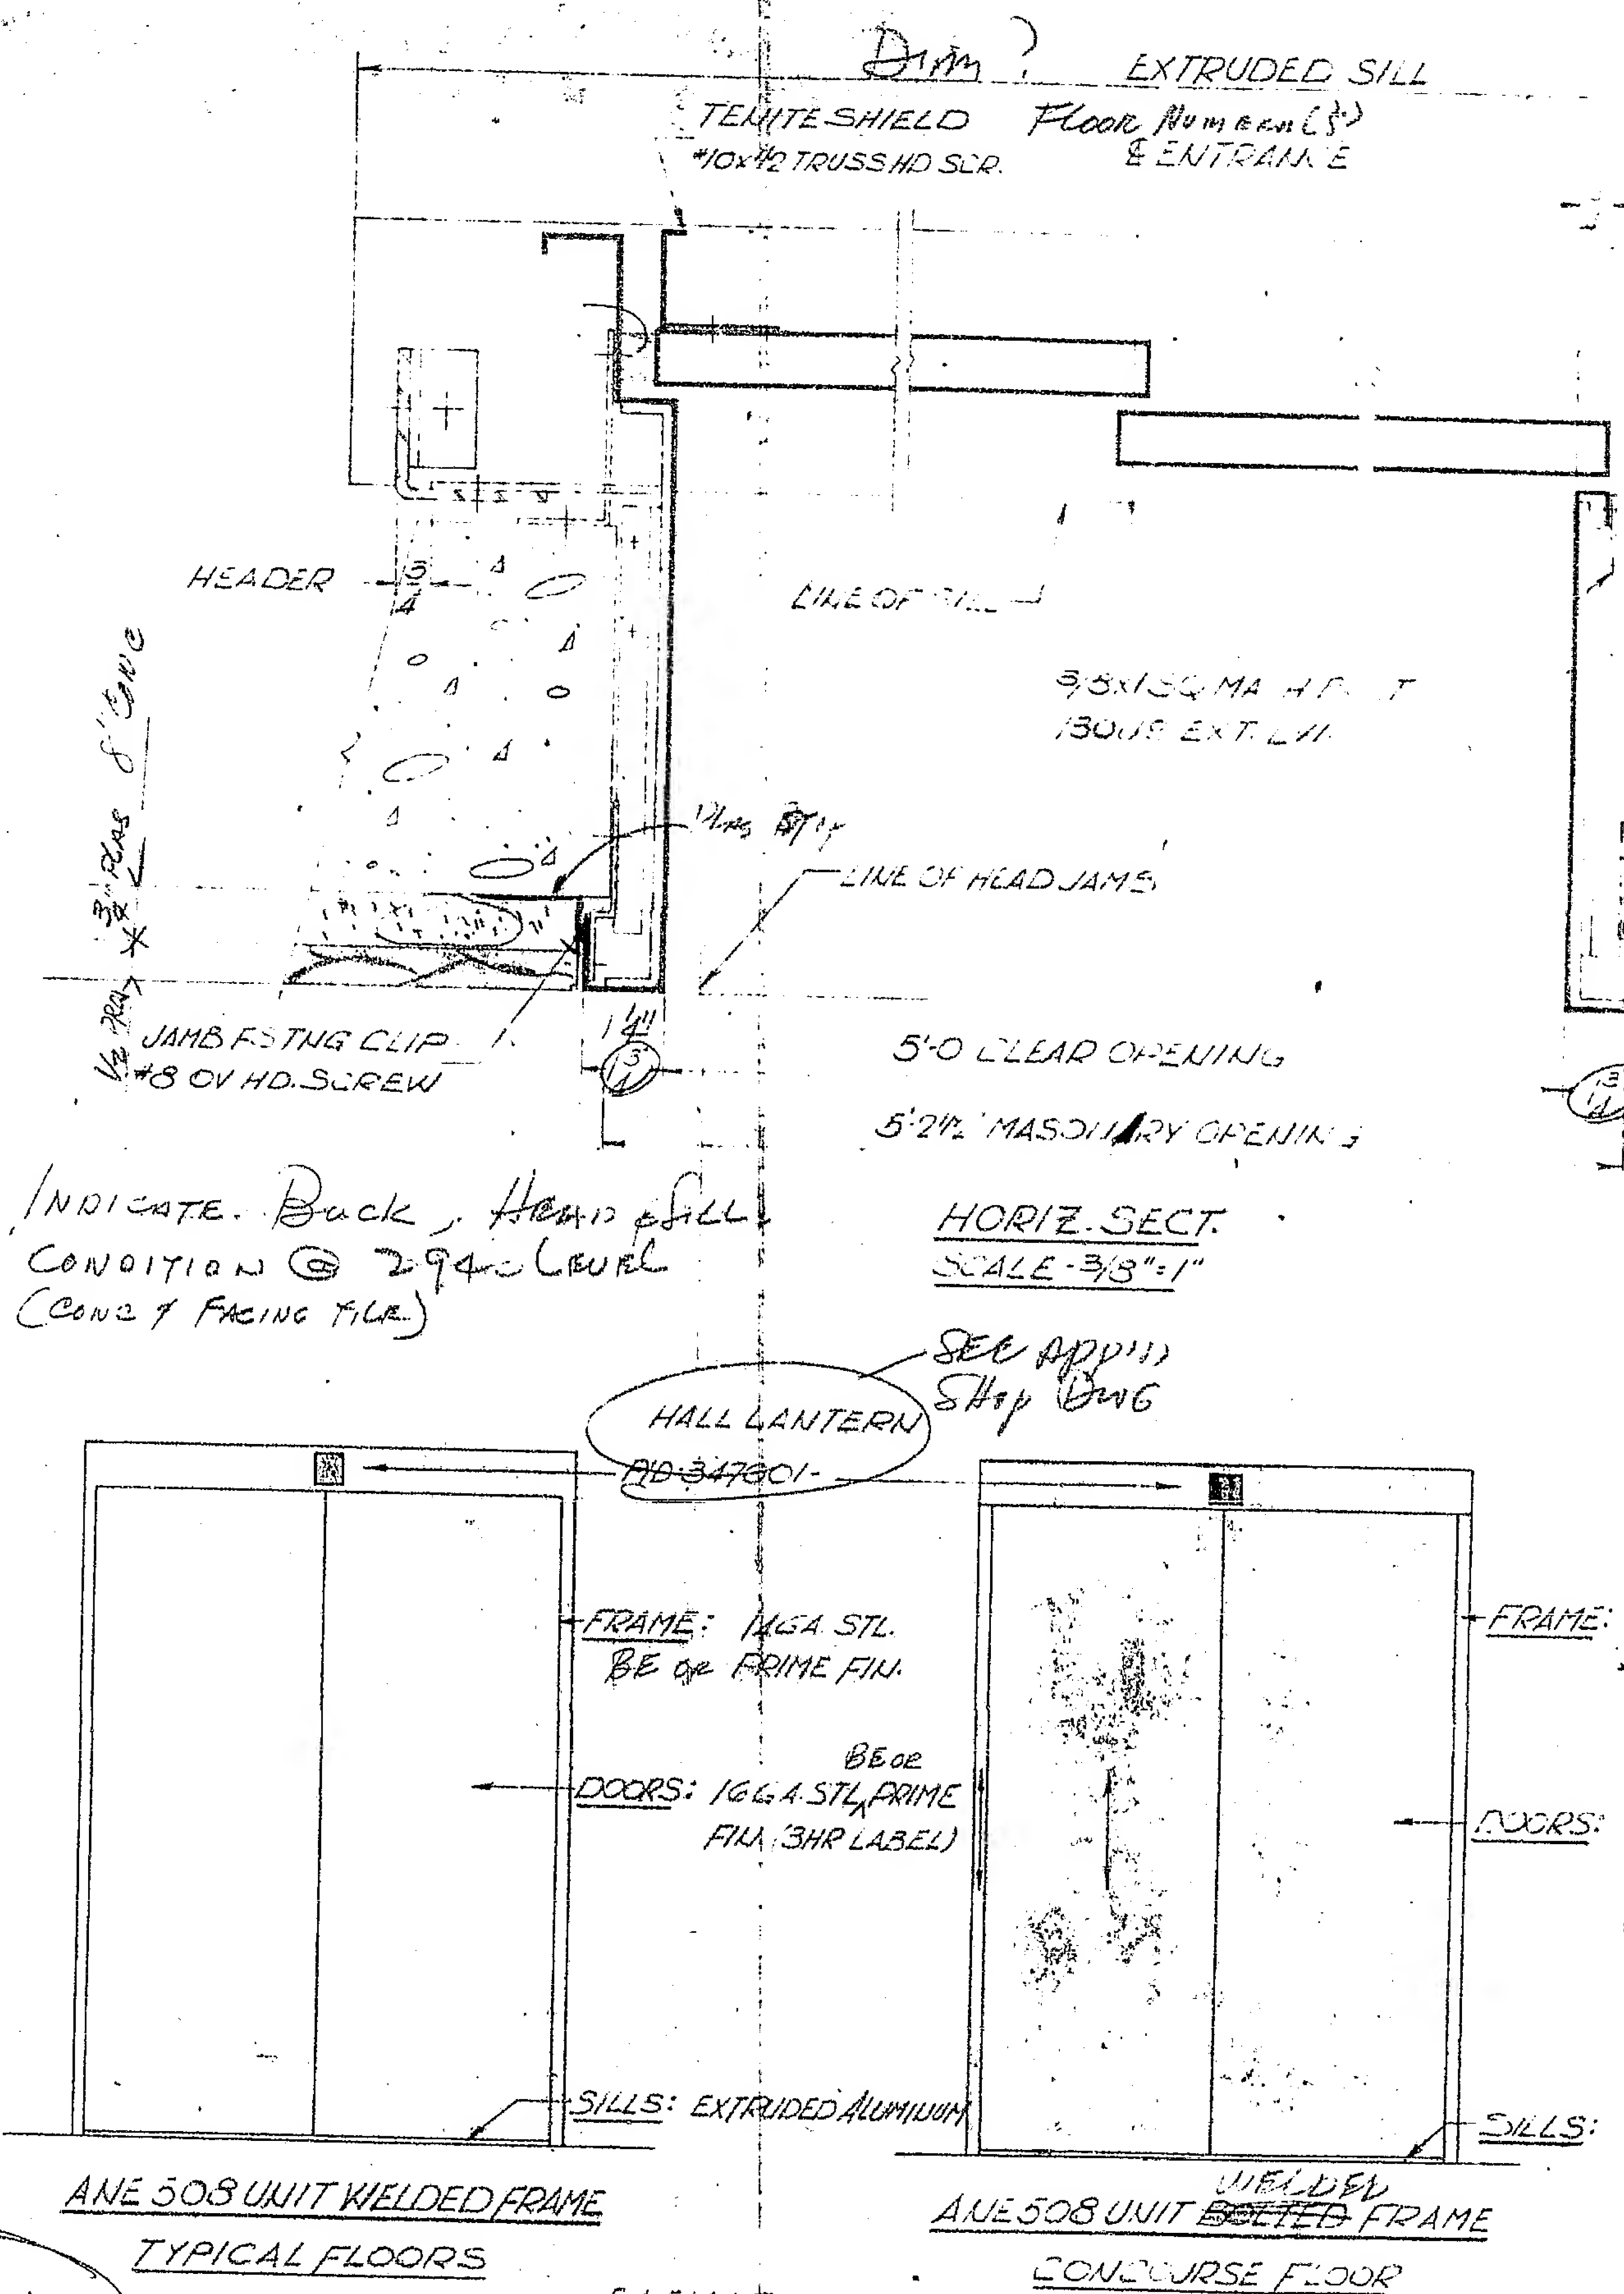 Dim ?
EXTRUDED SILL
TENITE SHIELD
#10x1/2 TRUSS HD SCR.
Floor
℄ ENTRANCE
HEADER
3/4
LINE OF SILL
8" CONC
3/4" PLAS
LINE OF HEAD JAMB
JAMB FSTNG CLIP
#8 OV HD. SCREW
1 1/4"
5'-0 CLEAR OPENING
5'-2 1/2" MASONARY OPENING
INDICATE. Buck, HEAD & SILL
CONDITION @ 294 LEVEL
(CONC & FACING TILE)
HORIZ. SECT.
SCALE - 3/8" = 1"
SEE
SHOP DWG
HALL LANTERN
AD-347601-
FRAME: 14GA. STL.
BE or PRIME FIN.
FRAME:
BE or
DOORS: 16GA. STL, PRIME
FIN. (3HR LABEL)
DOORS:
SILLS: EXTRUDED ALUMINUM
SILLS:
ANE 508 UNIT WELDED FRAME
TYPICAL FLOORS
WELDED
ANE 508 UNIT BOLTED FRAME
CONCOURSE FLOOR